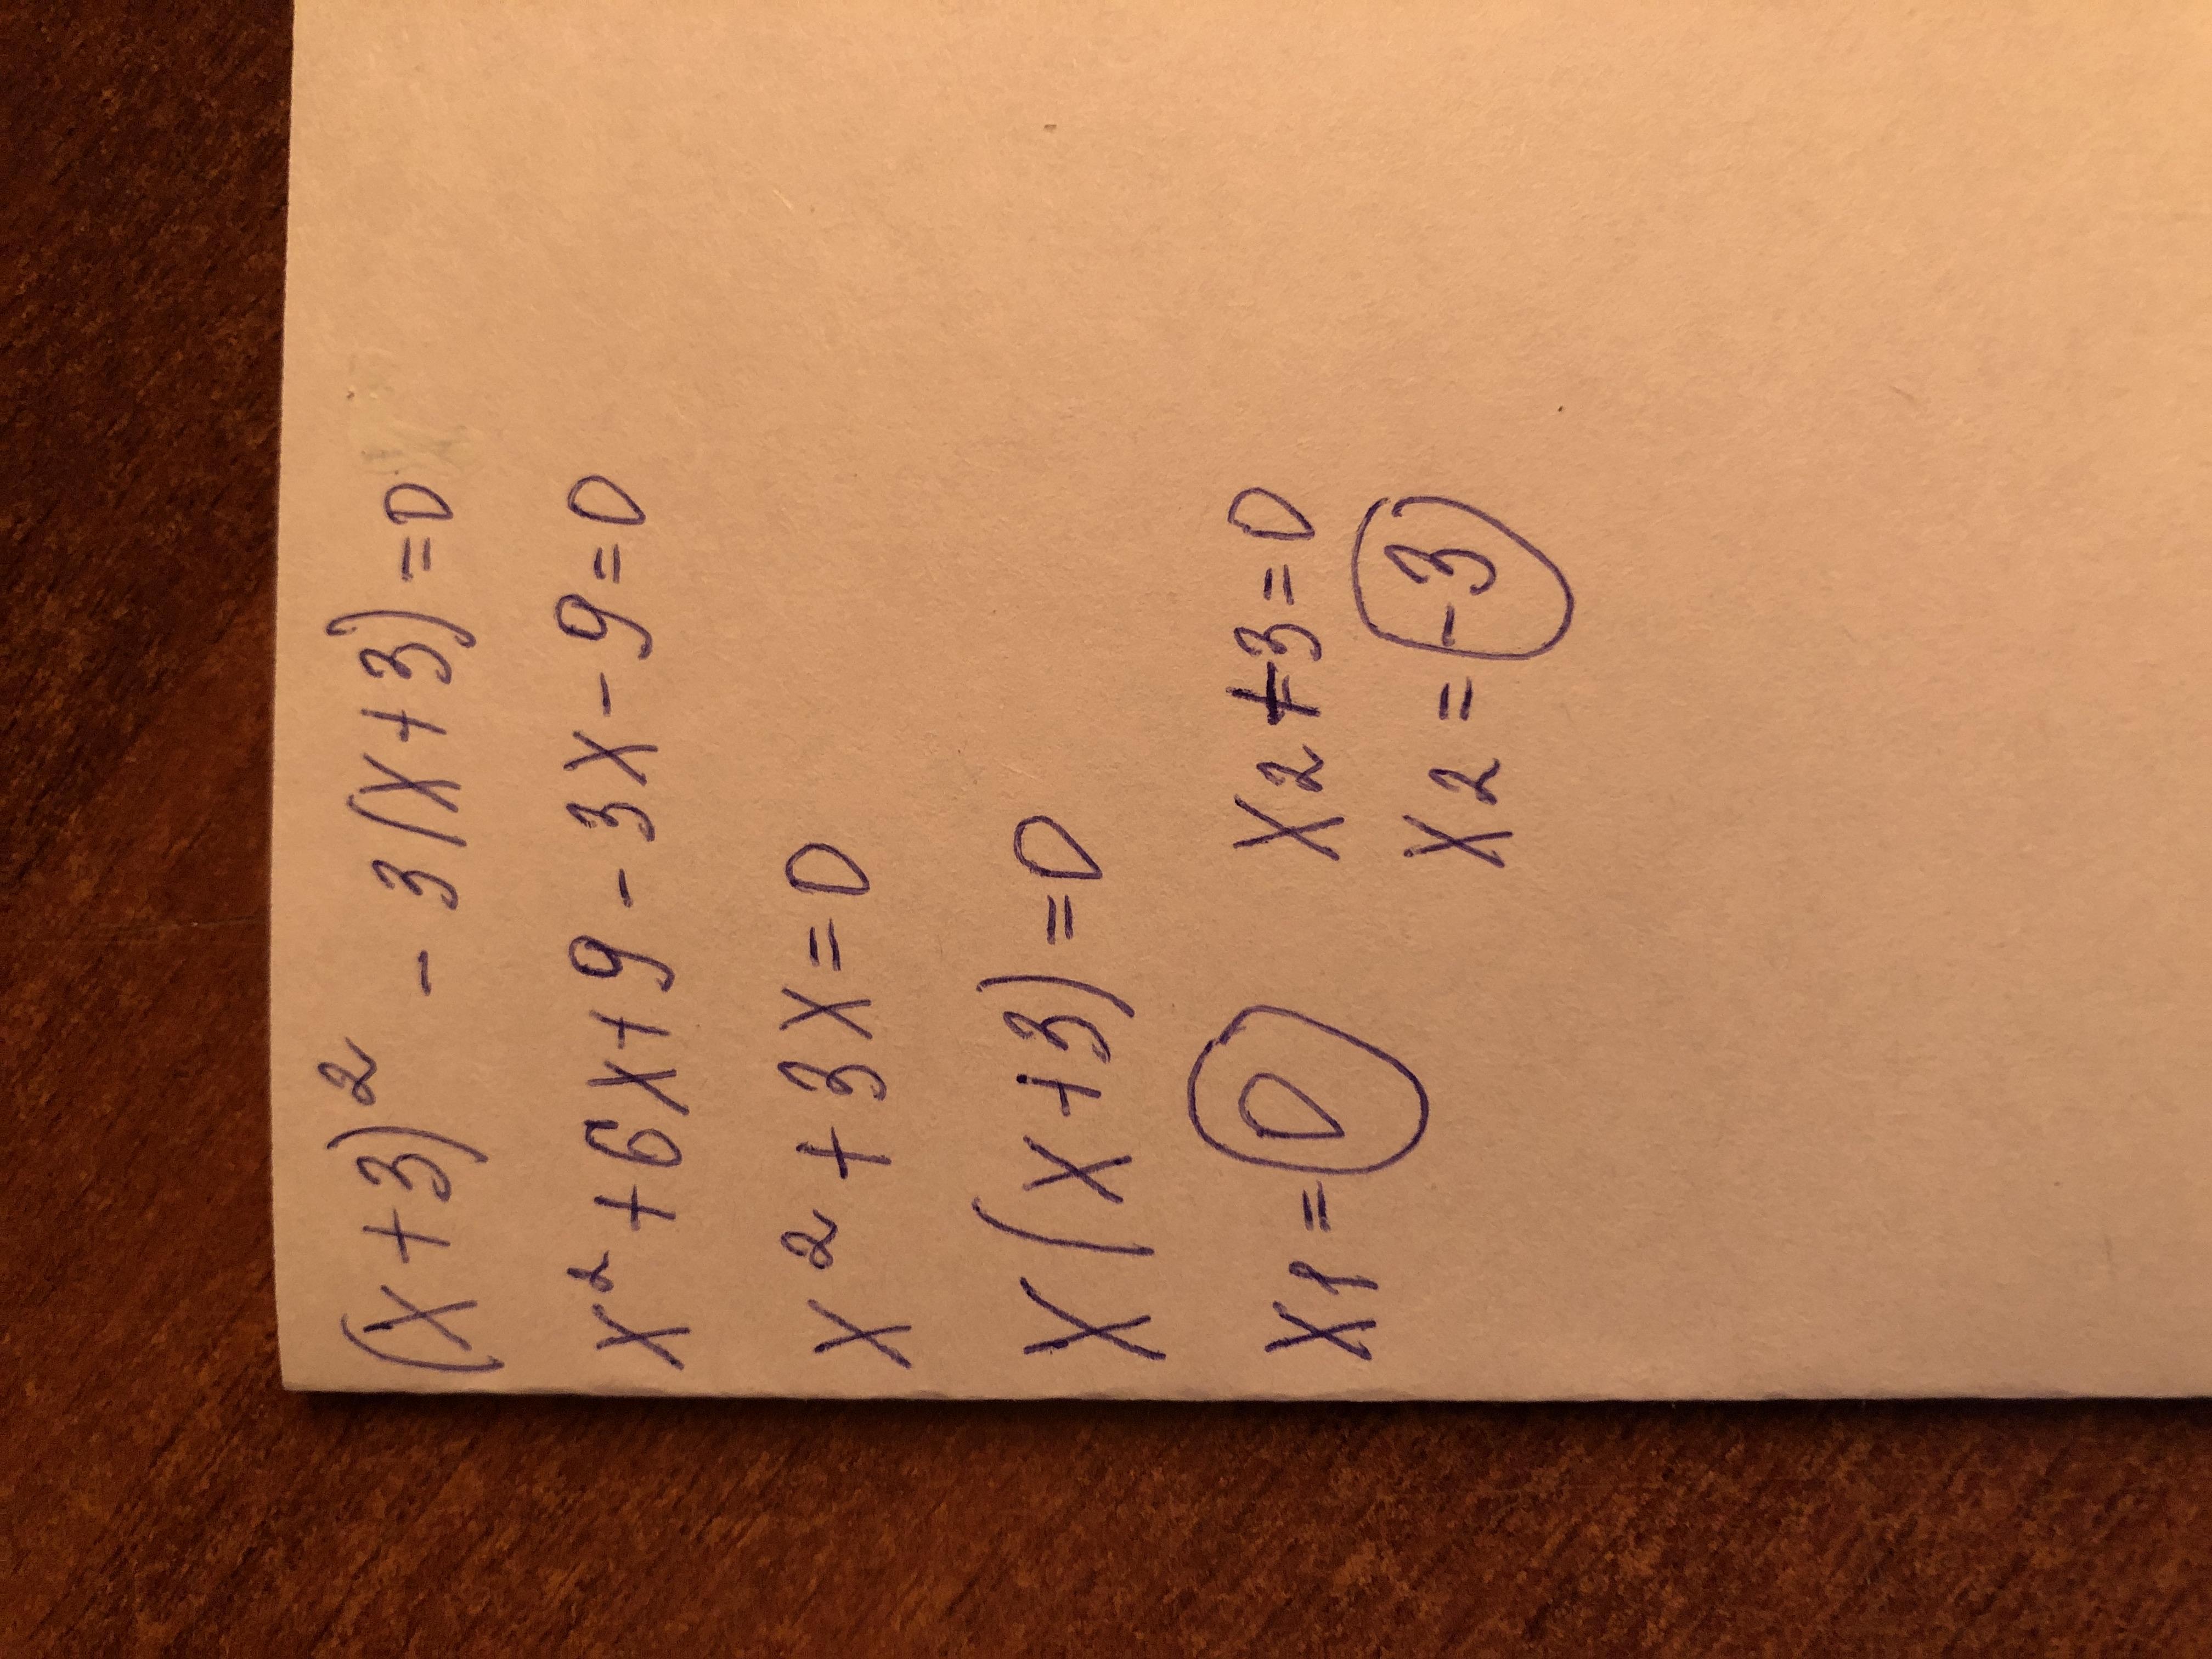 (x+3)² - 3(x+3)=0
x²+6x+9-3x-9=0
x²+3x=0
x(x+3)=0
x1=0 x2+3=0
x2=-3